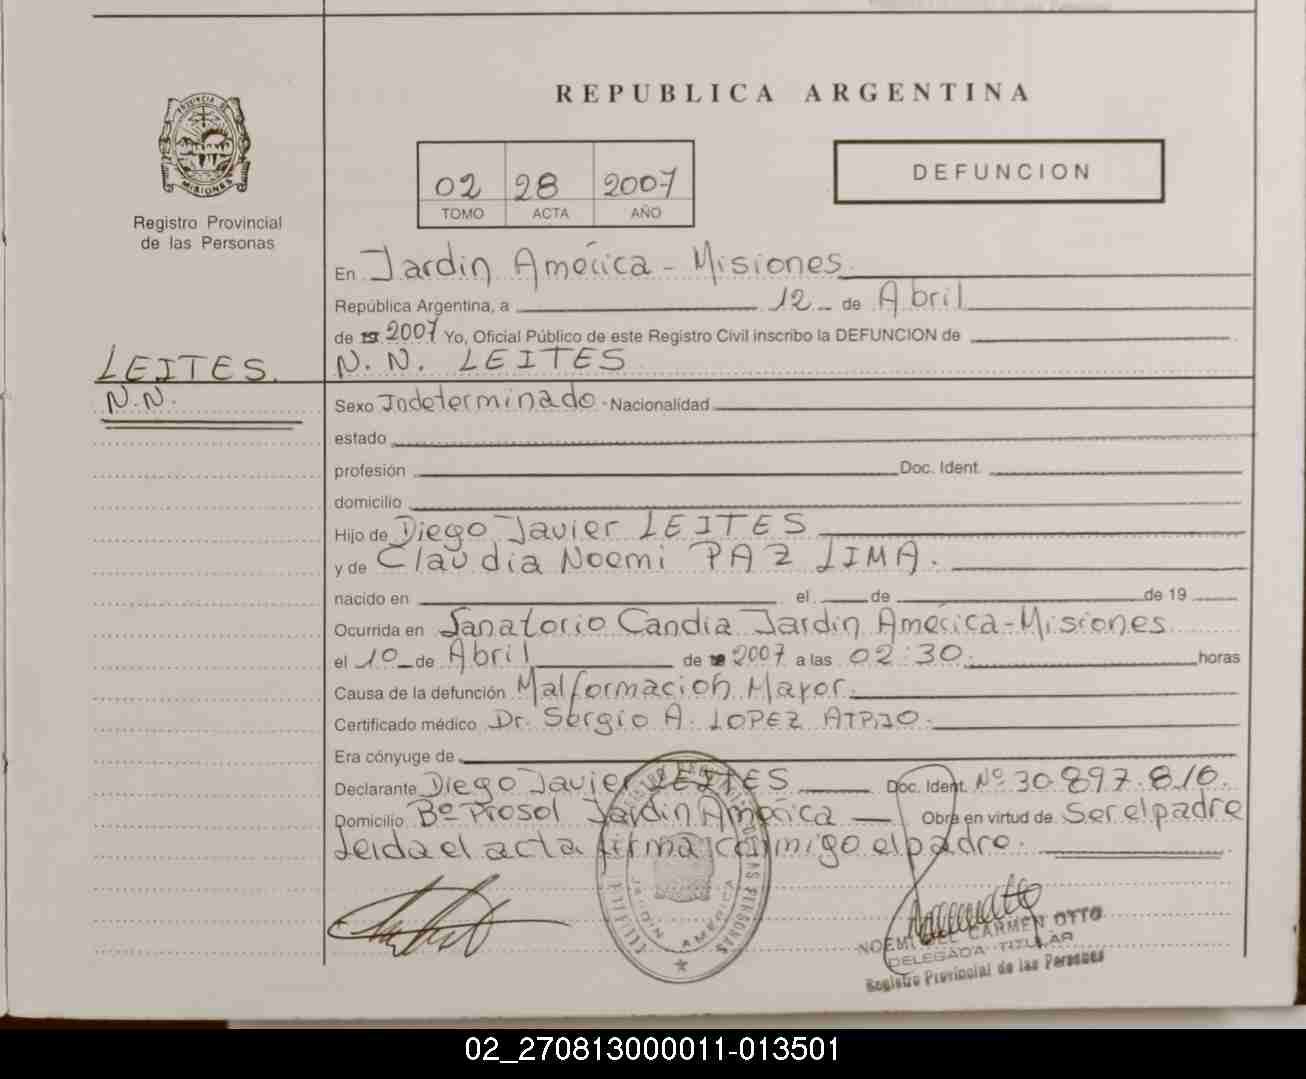 REPUBLICA ARGENTINA
PROVINCIA DE MISIONES
Registro Provincial
de las Personas
02 28 2007
TOMO ACTA AÑO
DEFUNCION
En Jardín América - Misiones
República Argentina, a 12 de Abril
de 19 2007 Yo, Oficial Público de este Registro Civil inscribo la DEFUNCION de
LEITES.
N.N.
N. N. LEITES
Sexo Indeterminado. Nacionalidad
estado
profesión Doc. Ident.
domicilio
Hijo de Diego Javier LEITES
y de Claudia Noemi PAZ LIMA.
nacido en el de de 19
Ocurrida en Sanatorio Candia Jardín América-Misiones
el 10 de Abril de 2007 a las 02:30. horas
Causa de la defunción Malformación Mayor.
Certificado médico Dr. Sergio A. LOPEZ
Era cónyuge de
Declarante Diego Javier LEITES Doc. Ident. Nº 30.897.816.
Domicilio Bº Prosol Jardín América Obra en virtud de Ser el padre
Leida el acta firma conmigo el padre.
JARDIN AMERICA
NOEMI DEL CARMEN OTTO
DELEGADA TITULAR
Registro Provincial de las Personas
02_270813000011-013501